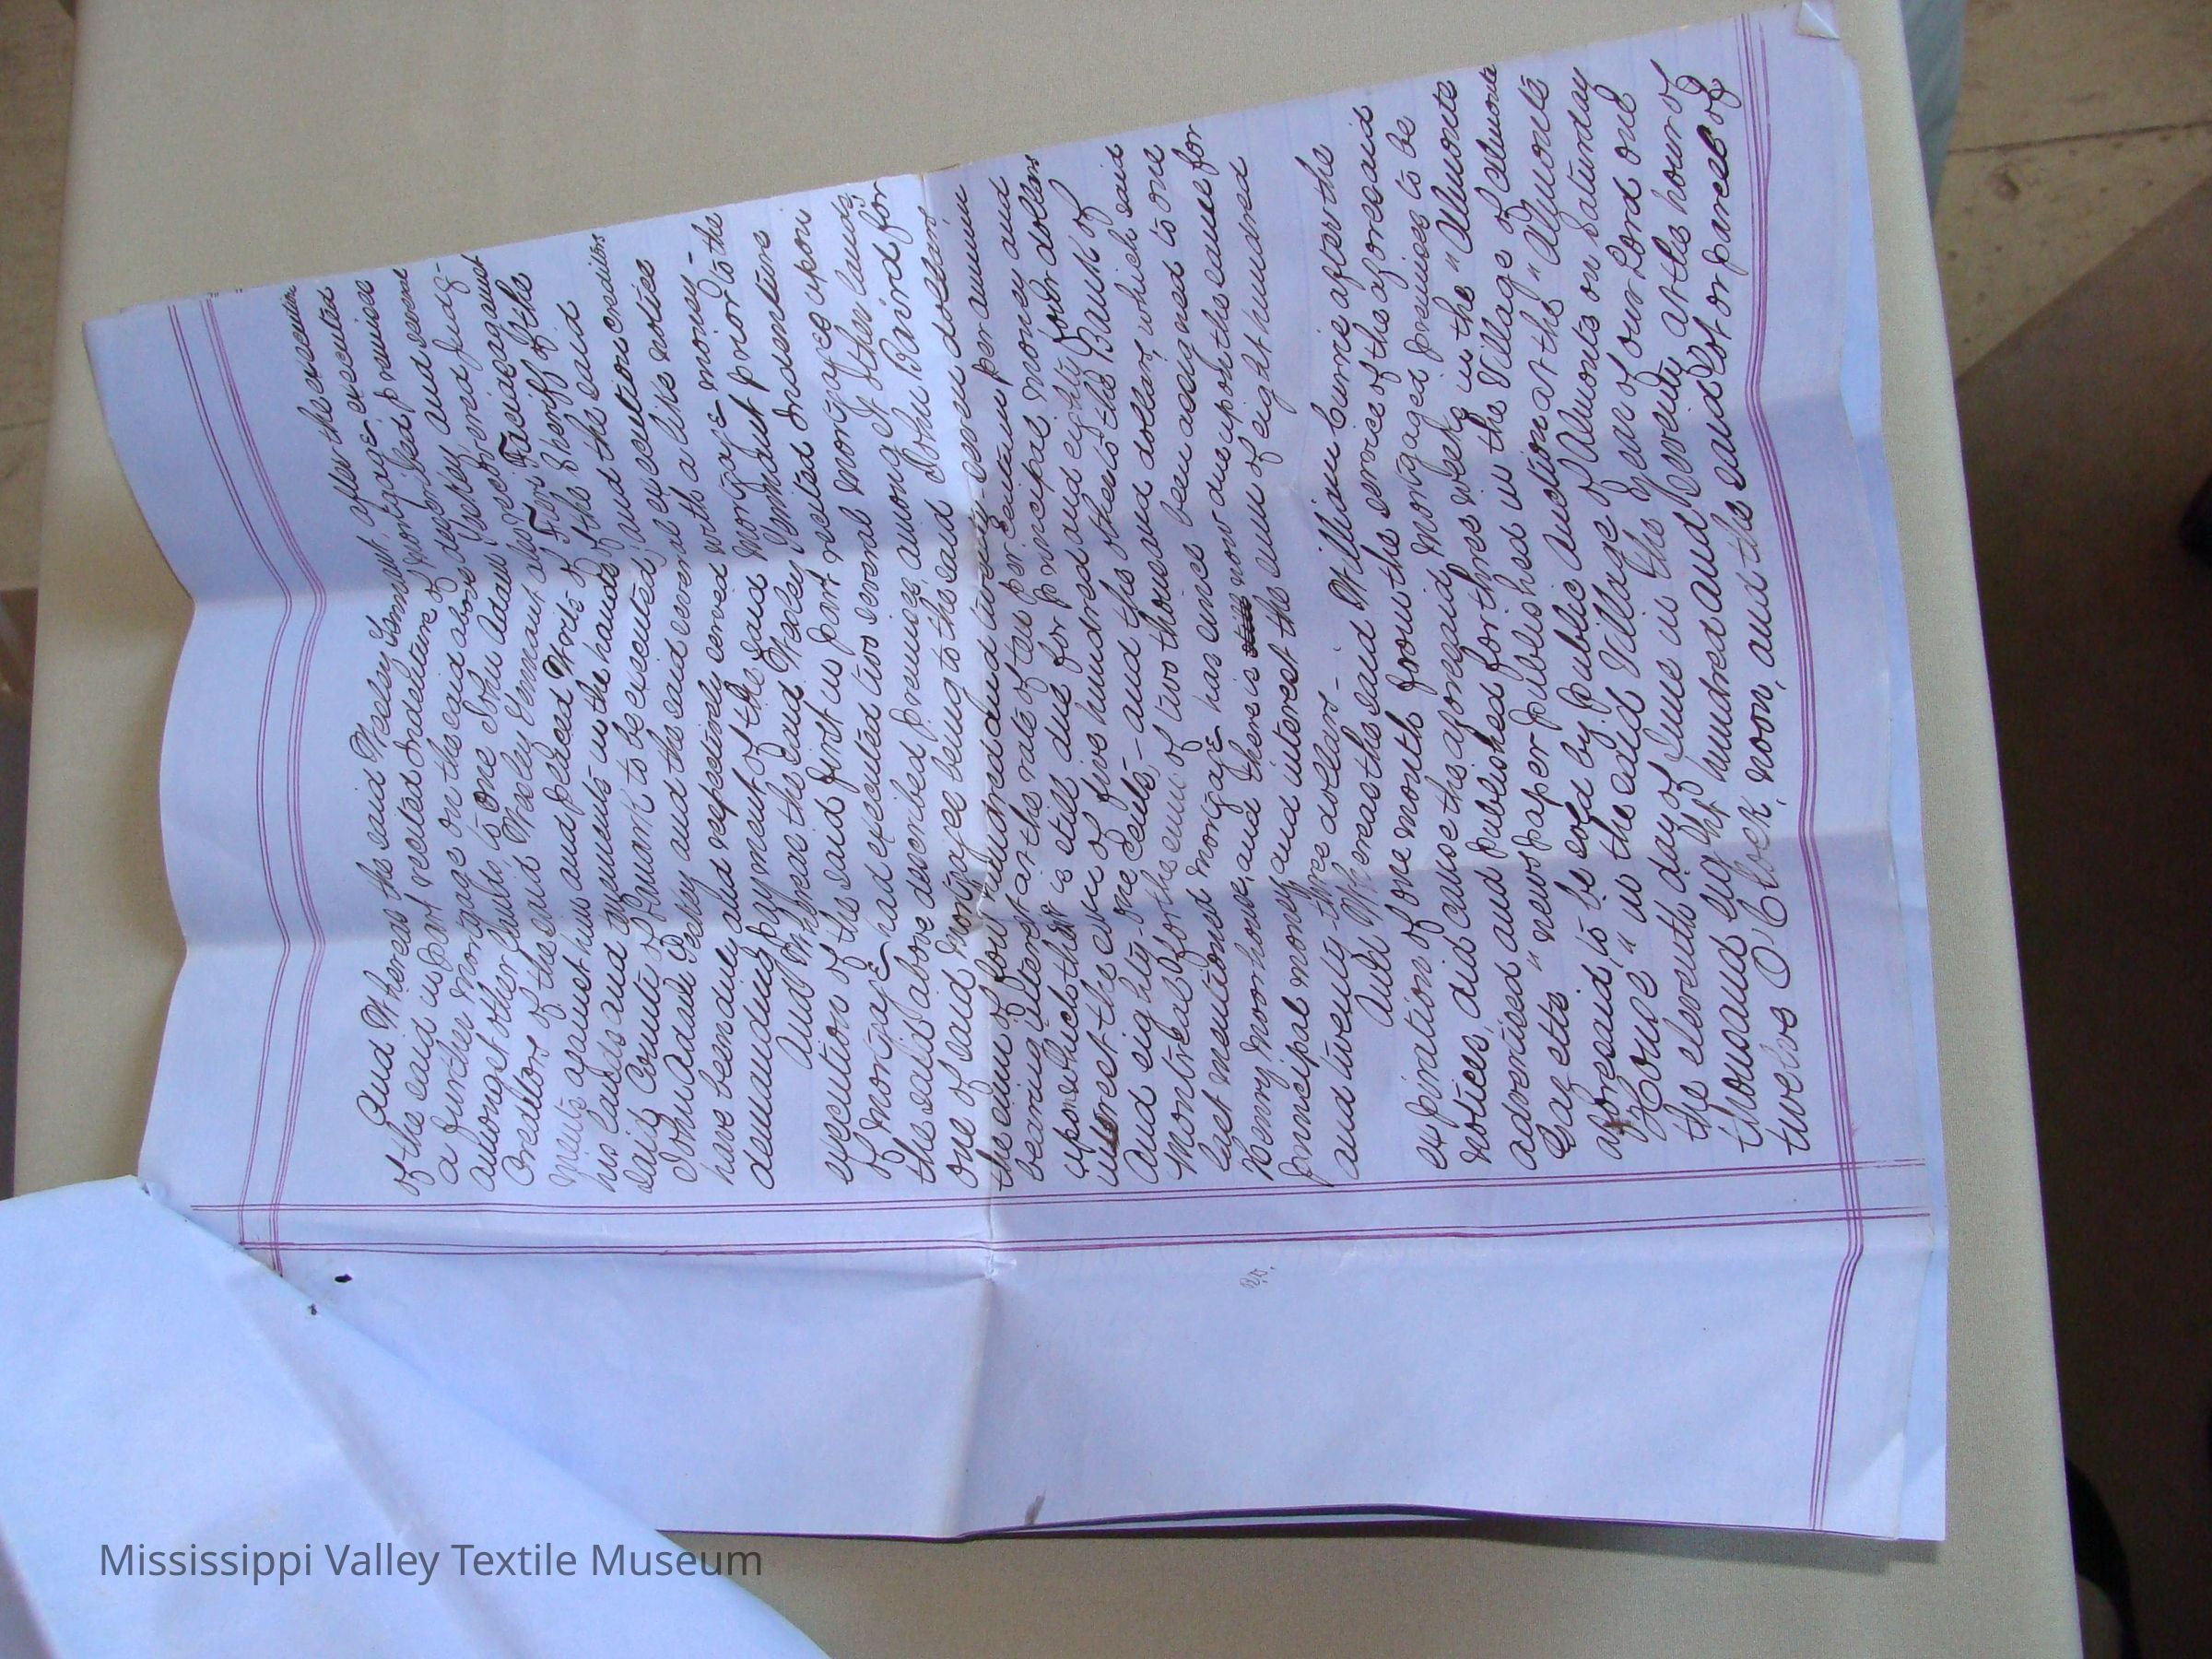 And Whereas the said Wesley Yemnant, after the execution
of the said in part recited Indenture of Mortgage executed
a further Mortgage on the said above described premises
amongst other lands to one John Adam Yeskey and several
Creditors of the said Wesley Yemnant also recovered Judg-
ments against him and placed Writs of Fieri Facias against
his lands and tenements in the hands of the Sheriff of the
said County of Lanark to be executed, and the said
John Adam Yeskey and the said several execution creditors
have been duly and respectively served with a like notice
demanding payment of the said Mortgage money-
And Whereas the said Wesley Yemnant prior to the
execution of the said first in part recited Indenture
of Mortgage had executed two several Mortgages upon
the said above described premises, among other lands
one of said Mortgages being to the said John Baird for
the sum of four hundred and twenty-seven dollars
bearing interest at the rate of ten per centum per annum
upon which there is still due for principal money and
interest the sum of five hundred and eighty four dollars
and eighty-one cents- and the other to the Bank of
Montreal for the sum of two thousand dollars which said
last mentioned Mortgage has since been assigned to one
Henry Moorhouse, and there is now due upon the same for
principal money and interest the sum of eight hundred
and twenty-three dollars-
And Whereas the said William Currie after the
expiration of one month from the service of the aforesaid
notices, did cause the aforesaid Mortgaged premises to be
advertised and published for three weeks in the "Almonte
Gazette" newspaper published in the Village of Almonte
aforesaid, to be sold by public Auction at the "Almonte
House" in the said Village of Almonte on Saturday
the eleventh day of June in the Year of our Lord one
thousand eight hundred and seventy at the hour of
twelve O'Clock, noon, and the said lot or parcel of
Mississippi Valley Textile Museum